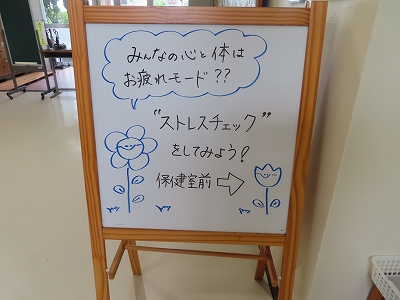 みんなの心と体は
お疲れモード??
"ストレスチェック"
をしてみよう!
保健室前⇨